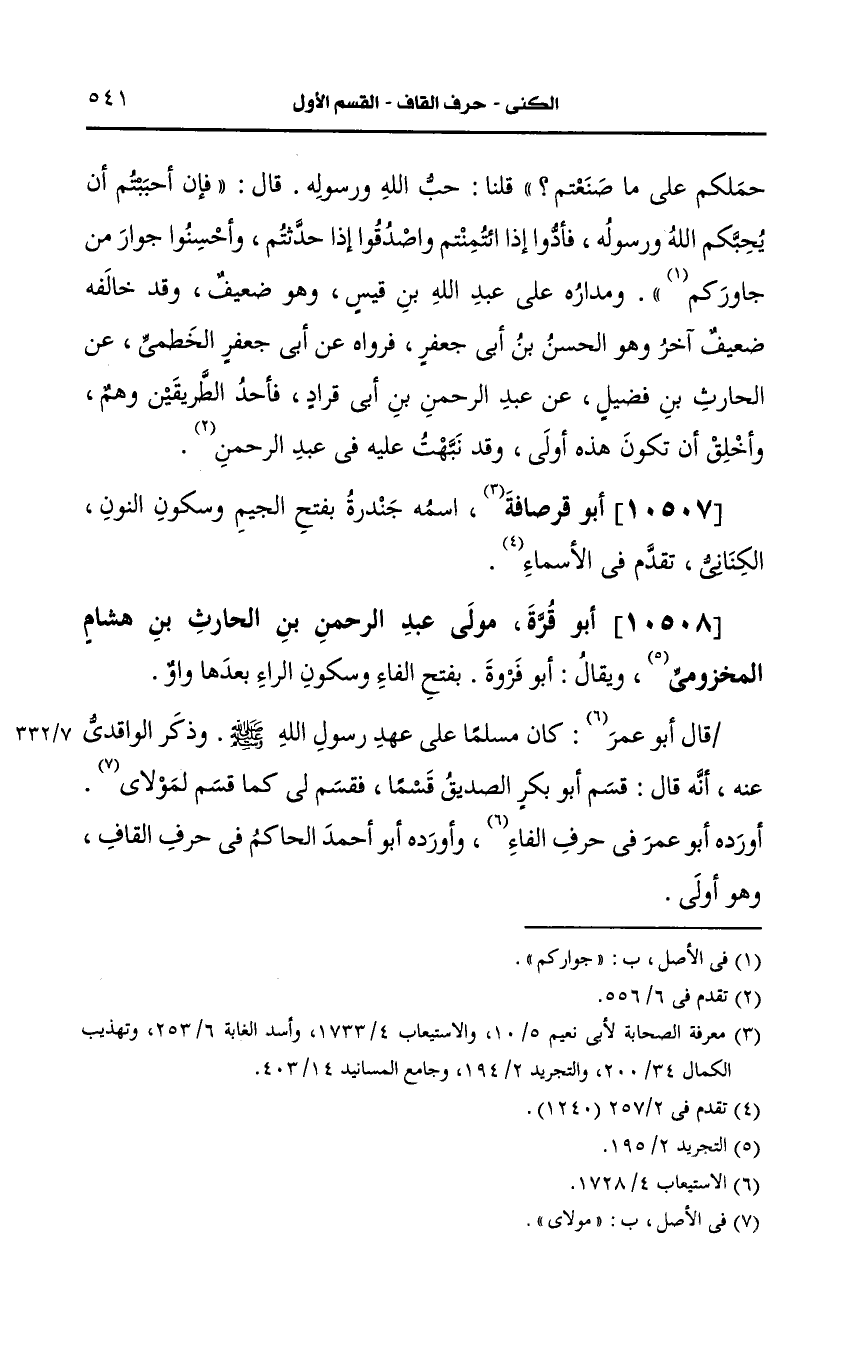 الكنى - حرف القاف - القسم الأول ٥٤١
حمَلكم على ما صَنَعْتم؟» قلنا: حبُّ اللهِ ورسولِه. قال: «فإن أحبَبْتُم أن
يُحِبَّكم اللهُ ورسولُه، فأدُّوا إذا ائتُمِنْتم واصْدُقُوا إذا حدَّثتُم، وأحْسِنُوا جوارَ من
جاورَكم(١)». ومدارُه على عبدِ اللهِ بنِ قيسٍ، وهو ضعيفٌ، وقد خالَفه
ضعيفٌ آخرُ وهو الحسنُ بنُ أبى جعفرٍ، فرواه عن أبى جعفرٍ الخَطمىِّ، عن
الحارثِ بنِ فضيلٍ، عن عبدِ الرحمنِ بنِ أبى قرادٍ، فأحدُ الطَّريقَيْن وهمٌ،
وأخْلِقْ أن تكونَ هذه أولَى، وقد نَبَّهْتُ عليه فى عبدِ الرحمنِ(٢).
[١٠٥٠٧] أبو قرصافةَ(٣)، اسمُه جَنْدرةُ بفتحِ الجيمِ وسكونِ النونِ،
الكِنَانِىُّ، تقدَّم فى الأسماءِ(٤).
[١٠٥٠٨] أبو قُرَّةَ، مولَى عبدِ الرحمنِ بنِ الحارثِ بنِ هشامٍ
المخزومىِّ(٥)، ويقالُ: أبو فَرْوةَ. بفتحِ الفاءِ وسكونِ الراءِ بعدَها واوٌ.
/قال أبو عمرَ(٦): كان مسلمًا على عهدِ رسولِ اللهِ ﷺ. وذكَر الواقدىُّ ٣٣٢/٧
عنه، أنَّه قال: قسَم أبو بكرٍ الصديقُ قَسْمًا، فقسَم لى كما قسَم لمَوْلاى(٧).
أورَده أبو عمرَ فى حرفِ الفاءِ(٦)، وأورَده أبو أحمدَ الحاكمُ فى حرفِ القافِ،
وهو أولَى.
(١) فى الأصل، ب: «جواركم».
(٢) تقدم فى ٦/ ٥٥٦.
(٣) معرفة الصحابة لأبى نعيم ٥/ ١٠، والاستيعاب ٤/ ١٧٣٣، وأسد الغابة ٦/ ٢٥٣، وتهذيب
الكمال ٣٤/ ٢٠٠، والتجريد ٢/ ١٩٤، وجامع المسانيد ١٤/ ٤٠٣.
(٤) تقدم فى ٢/ ٢٥٧ (١٢٤٠).
(٥) التجريد ٢/ ١٩٥.
(٦) الاستيعاب ٤/ ١٧٢٨.
(٧) فى الأصل، ب: «مولاى».